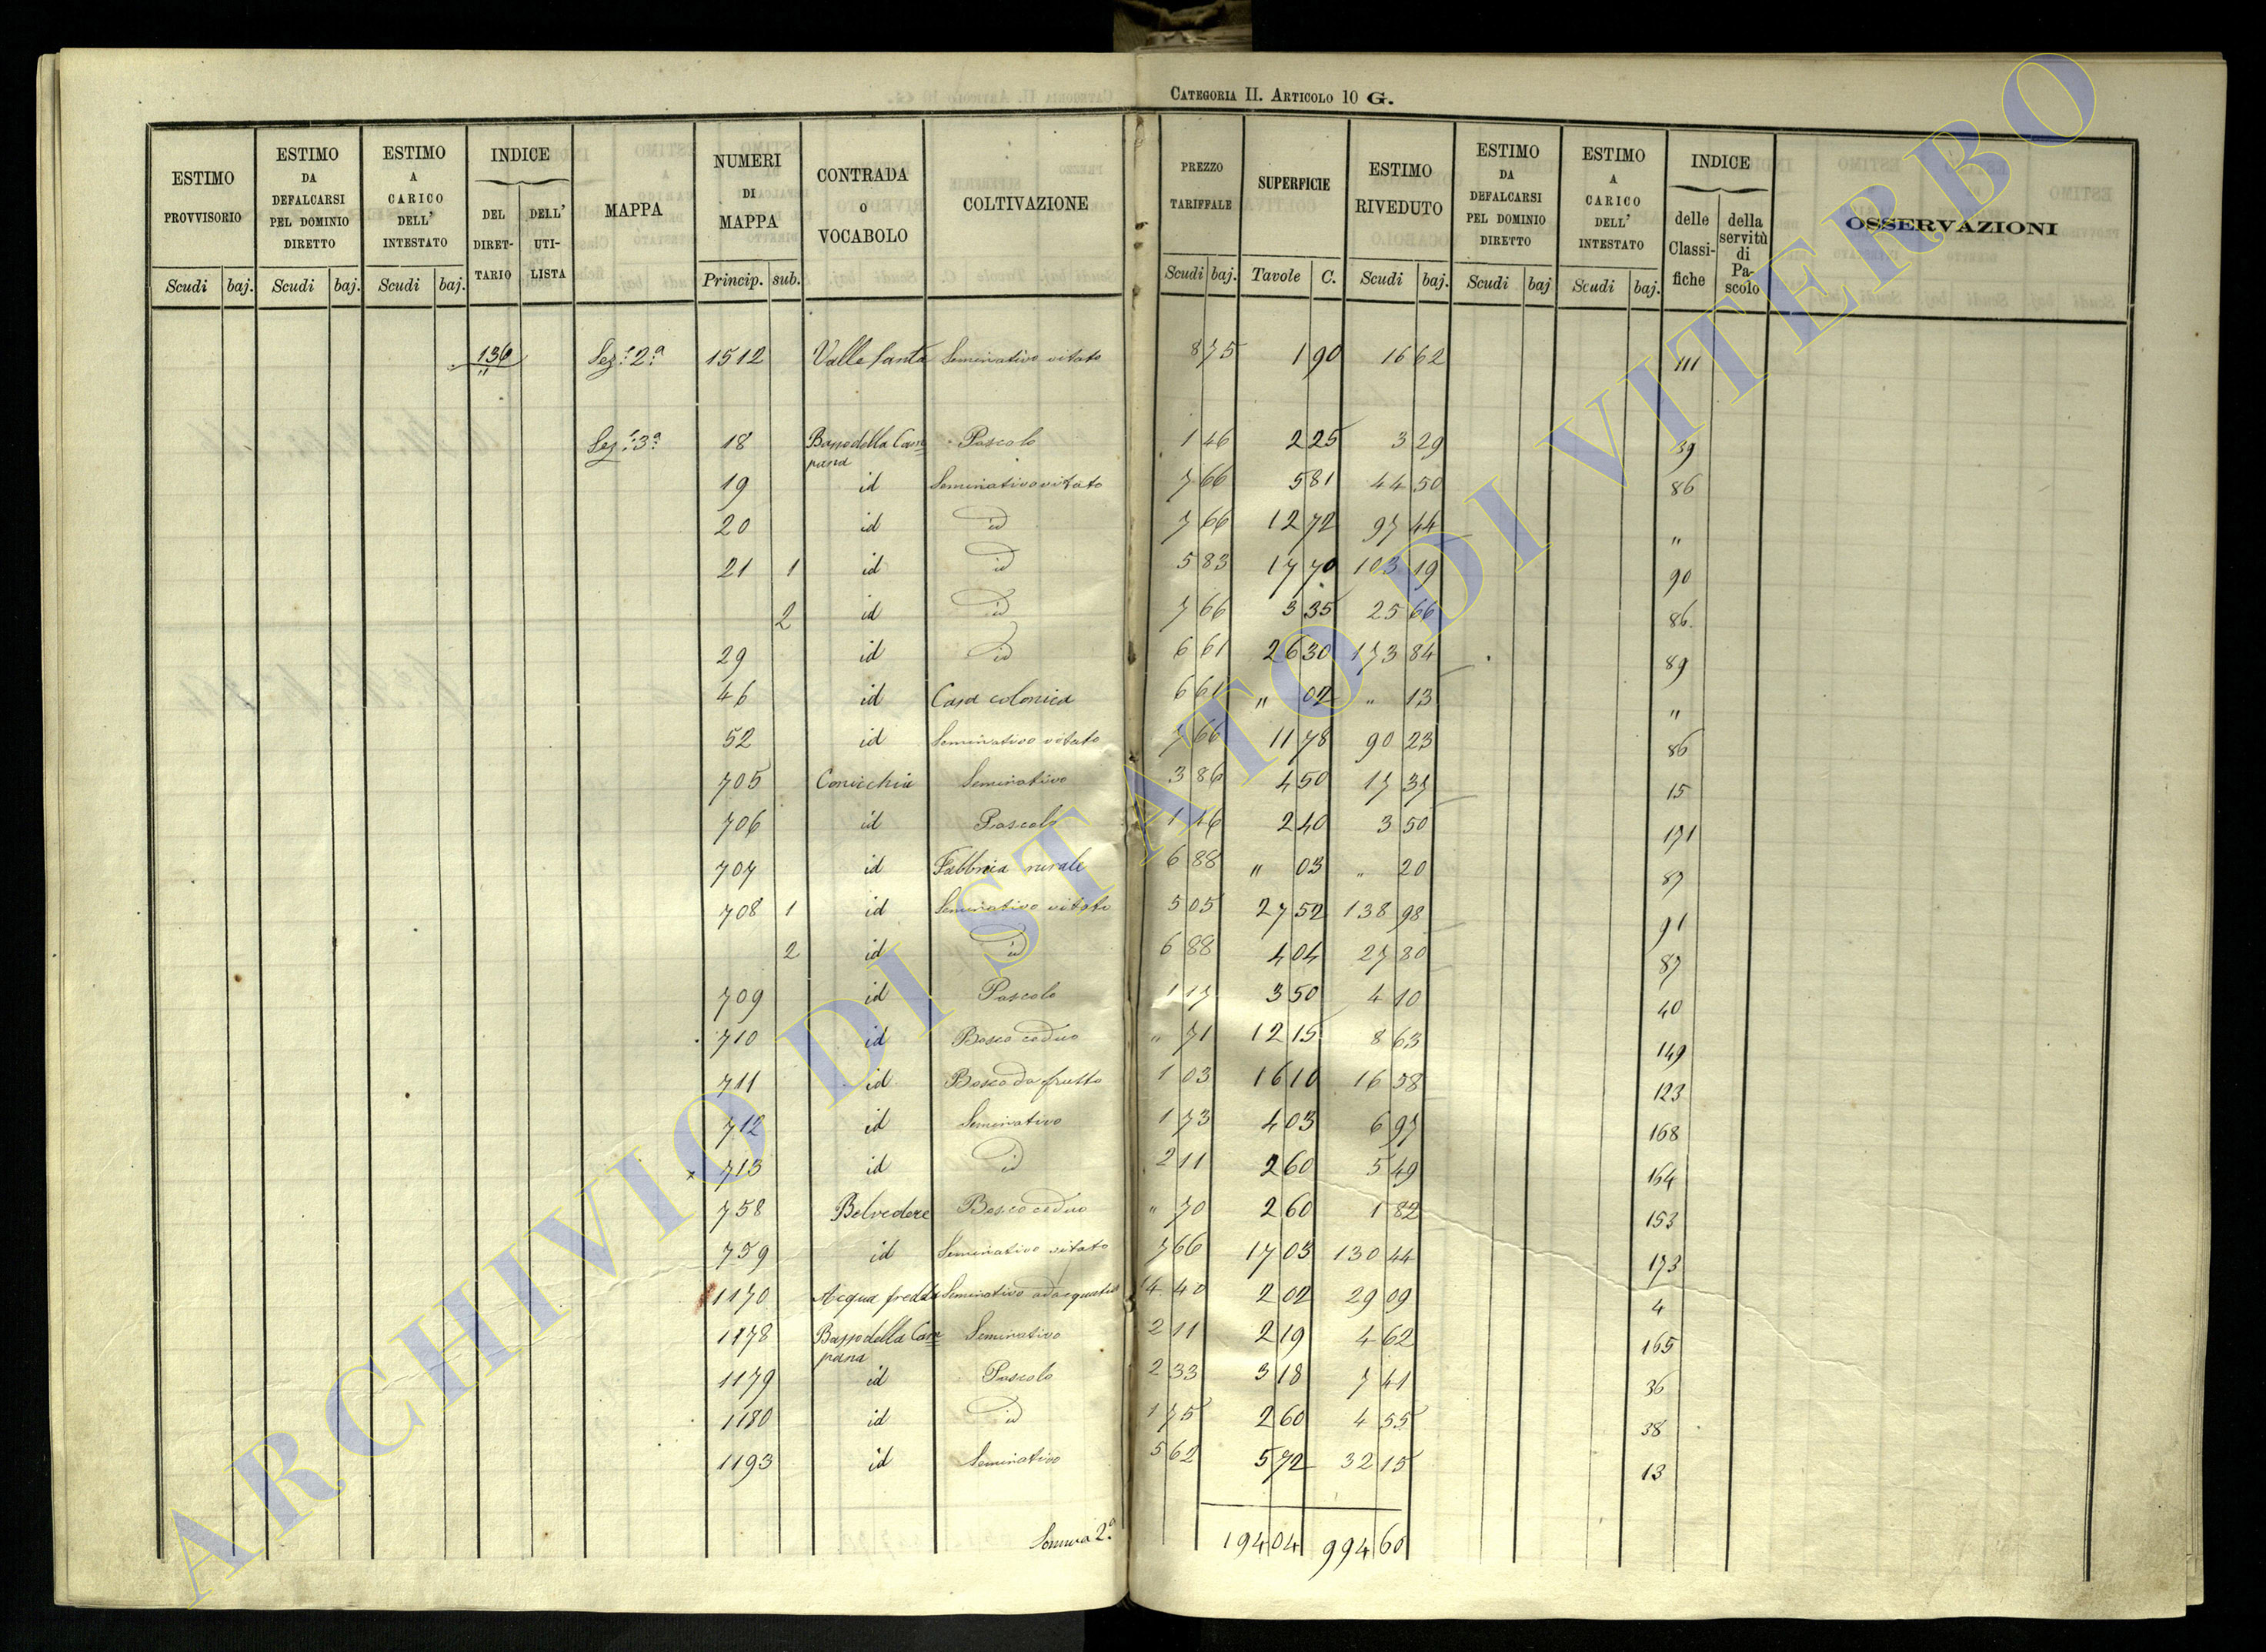 CATEGORIA II. ARTICOLO 10 G.
ESTIMO PROVVISORIO Scudi baj. | ESTIMO DA DEFALCARSI PEL DOMINIO DIRETTO Scudi baj. | ESTIMO A CARICO DELL' INTESTATO Scudi baj. | INDICE DEL DIRET-TARIO DELL' UTI-LISTA | MAPPA | NUMERI DI MAPPA Princip. sub. | CONTRADA O VOCABOLO | COLTIVAZIONE | PREZZO TARIFFALE Scudi baj. | SUPERFICIE Tavole C. | ESTIMO RIVEDUTO Scudi baj. | ESTIMO DA DEFALCARSI PEL DOMINIO DIRETTO Scudi baj | ESTIMO A CARICO DELL' INTESTATO Scudi baj. | INDICE delle Classi-fiche della servitù di Pa-scolo | OSSERVAZIONI
136 Sez.e 2.a 1512 Valle santa Seminativo vitato 8 75 1 90 16 62 111
Sez.e 3.a 18 Basso della Cam= Pascolo 1 46 2 25 3 29 39
pana
19 id Seminativo vitato 7 66 5 81 44 50 86
20 id id 7 66 12 72 97 44 "
21 1 id id 5 83 17 70 103 19 90
2 id id 7 66 3 35 25 66 86
29 id id 6 61 26 30 173 84 89
46 id Casa colonica 6 61 " 02 " 13 "
52 id Seminativo vitato 7 66 11 78 90 23 86
705 Conicchia Seminativo 3 86 4 50 17 37 15
706 id Pascolo 1 46 2 40 3 50 171
707 id Fabbrica rurale 6 88 " 03 " 20 87
708 1 id Seminativo vitato 5 05 27 52 138 98 91
2 id id 6 88 4 04 27 80 87
709 id Pascolo 1 17 3 50 4 10 40
710 id Bosco ceduo " 71 12 15 8 63 149
711 id Bosco da frutto 1 03 16 10 16 58 123
712 id Seminativo 1 73 4 03 6 97 168
713 id id 2 11 2 60 5 49 164
758 Belvedere Bosco ceduo " 70 2 60 1 82 153
759 id Seminativo vitato 7 66 17 03 130 44 173
1170 Acqua fredda Seminativo adacquativo 14 40 2 02 29 09 4
1178 Basso della Cam= Seminativo 2 11 2 19 4 62 165
pana
1179 id Pascolo 2 33 3 18 7 41 36
1180 id id 1 75 2 60 4 55 38
1193 id Seminativo 5 62 5 72 32 15 13
Somma 2.a 194 04 994 60
ARCHIVIO DI STATO DI VITERBO